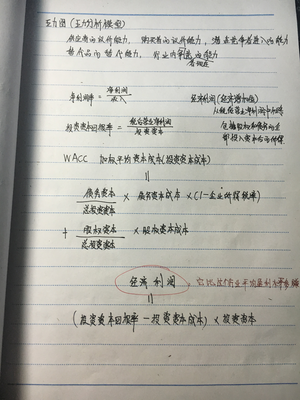 五力图（五力分析模型）
供应商的议价能力，购买者的议价能力，潜在竞争者进入的能力
替代品的替代能力，行业内竞争者现在
净利润率 = 净利润 / 收入
经济利润（经济增加值）
从税后营业净利润中扣除
投资资本回报率 = 税后营业净利润 / 投资资本
包括股权和债务的全部投入资本
WACC 加权平均资本成本（投资资本成本）
||
债务资本 / 总投资资本 × 债务资本成本 × (1-企业所得税率)
+ 股权资本 / 总投资资本 × 股权资本成本
经济利润
||
(投资资本回报率 - 投资资本成本) × 投资资本